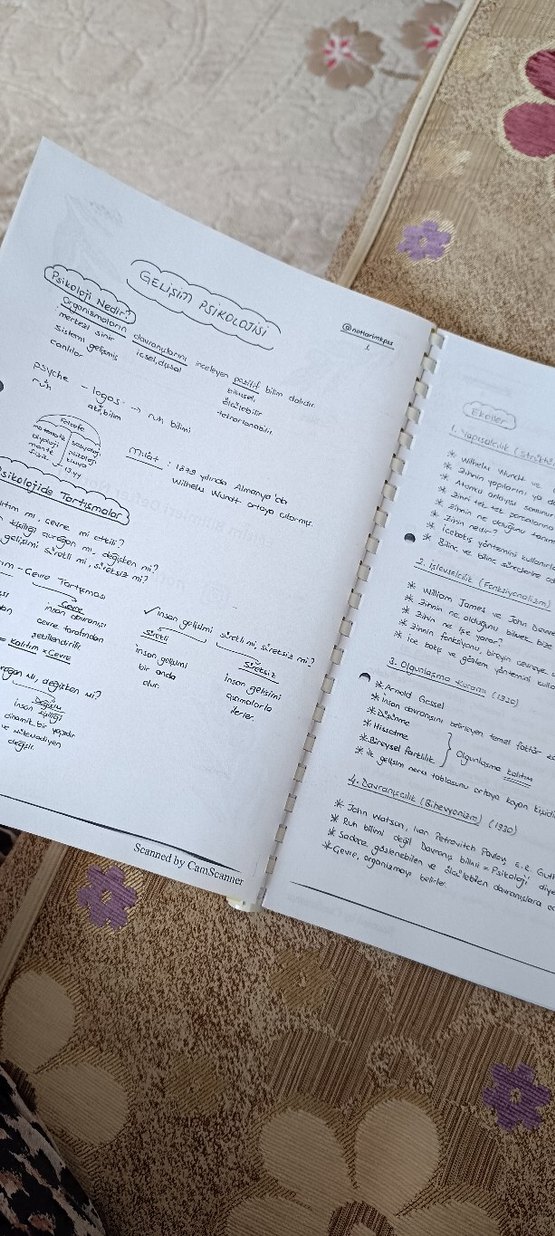 GELİŞİM PSİKOLOJİSİ
@notlarimkpss
1
Psikoloji Nedir?
Organizmaların davranışlarını inceleyen pozitif bilim dalıdır.
merkezi sinir
sistemi gelişmiş
canlılar
içsel, dışsal
bilimsel,
ölçülebilir
tekrarlanabilir.
psyche - logos --> ruh bilimi
ruh
akıl, bilim
felsefe
matematik
biyoloji
mantık
fizik
sosyoloji
psikoloji
kimya
Milat: 1879 yılında Almanya'da
Wilhelm Wundt ortaya çıkarmış.
Psikolojide Tartışmalar
mı, çevre mi etkili?
kişiliği durağan mı, değişken mi?
gelişimi sürekli mi, süreksiz mi?
Çevre Tartışması
Çevre
insan davranışı
çevre tarafından
şekillendirilir
Kalıtım x Çevre
mı, değişken mi?
Değişken
insan kişiliği
dinamik bir yapıdır
ve
değişir.
✓ insan gelişimi sürekli mi, süreksiz mi?
Sürekli
insan gelişimi
bir anda
olur.
Süreksiz
insan gelişimi
aşamalarla
ilerler.
Scanned by CamScanner
Ekoller
1. Yapısalcılık
* Wilhelm Wundt ve
* Zihnin yapılarını
* Atomcu anlayışı
* Zihni tek tek
* Zihnin ne olduğunu
* Zihin nedir?
* İcebakış yöntemini
* Bilinç ve bilinç süreçlerine
2. İşlevselcilik (Fonksiyonalizm)
* William James ve John
* Zihnin ne olduğunu bilmek bize
* Zihin ne işe yarar?
* Zihnin fonksiyonu, bireyin çevreye
* İce bakış ve gözlem yöntemini
3. Olgunlaşma Kuramı (1930)
* Arnold Gessel
* İnsan davranışını belirleyen temel faktör
* Düşünme
* Hissetme
* Bireysel farklılık
Olgunlaşma kalıtım
* ilk gelişim norm tablosunu ortaya koyan
4. Davranışçılık (Bihevyorizm) (1930)
* John Watson, Ivan Petrovitch Pavlov, E.R.
* Ruh bilimi değil Davranış bilimi = Psikoloji
* Sadece gözlenebilen ve ölçülebilen davranışlara
* Çevre, organizmayı belirler.